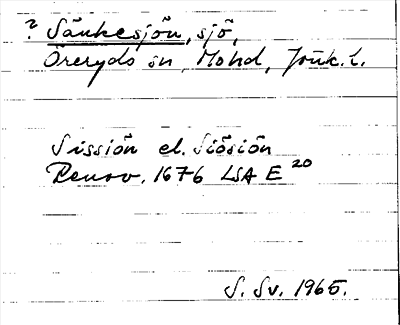 ? Sänkesjön, sjö,
Öreryds sn, Mohd, Jönk. l.
Sissiön el. Siösiön
Renov. 1676 LSA E 20
S. Sv. 1965.